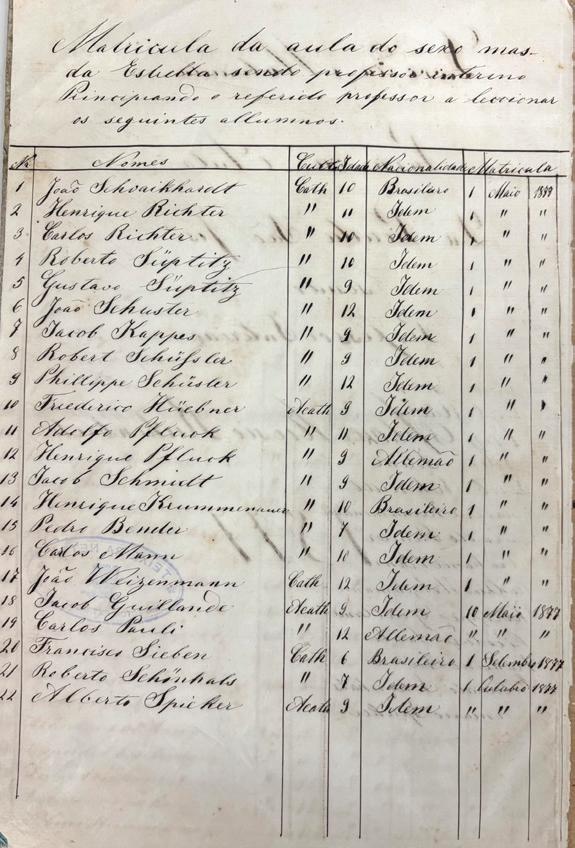 Matricula da aula do sexo mas-
da Estrella sendo professor interino
Principiando o referido professor a leccionar
os seguintes allumnos.
Nº Nomes Culto Idade Nacionalidade Matricula
1 João Schvaikhardt Cath 10 Brasilero 1 Maio 1877
2 Henrique Richter " 11 Idem 1 " "
3 Carlos Richter " 10 Idem 1 " "
4 Roberto Süptitz " 10 Idem 1 " "
5 Gustavo Süptitz " 9 Idem 1 " "
6 João Schuster " 12 Idem 1 " "
7 Jacob Kappes " 9 Idem 1 " "
8 Robert Schüssler " 9 Idem 1 " "
9 Phillippe Schüster " 12 Idem 1 " "
10 Friederico Hüebner Acath 9 Idem 1 " "
11 Adolfo Pfluck " 11 Idem 1 " "
12 Henrique Pfluck " 9 Allemão 1 " "
13 Jacob Schmidt " 9 Idem 1 " "
14 Henrique Krummenauer " 10 Brasileiro 1 " "
15 Pedro Bender " 7 Idem 1 " "
16 Carlos Mann " 10 Idem 1 " "
17 João Weizenmann Cath 12 Idem 1 " "
18 Jacob Guillande Acath 9 Idem 10 Maio 1877
19 Carlos Pauli " 12 Allemão " " "
20 Francisco Sieben Cath 6 Brasileiro 1 Setembro 1877
21 Roberto Schönhals " 7 Idem 1 Outubro 1877
22 Alberto Spieker Acath 9 Idem " " "